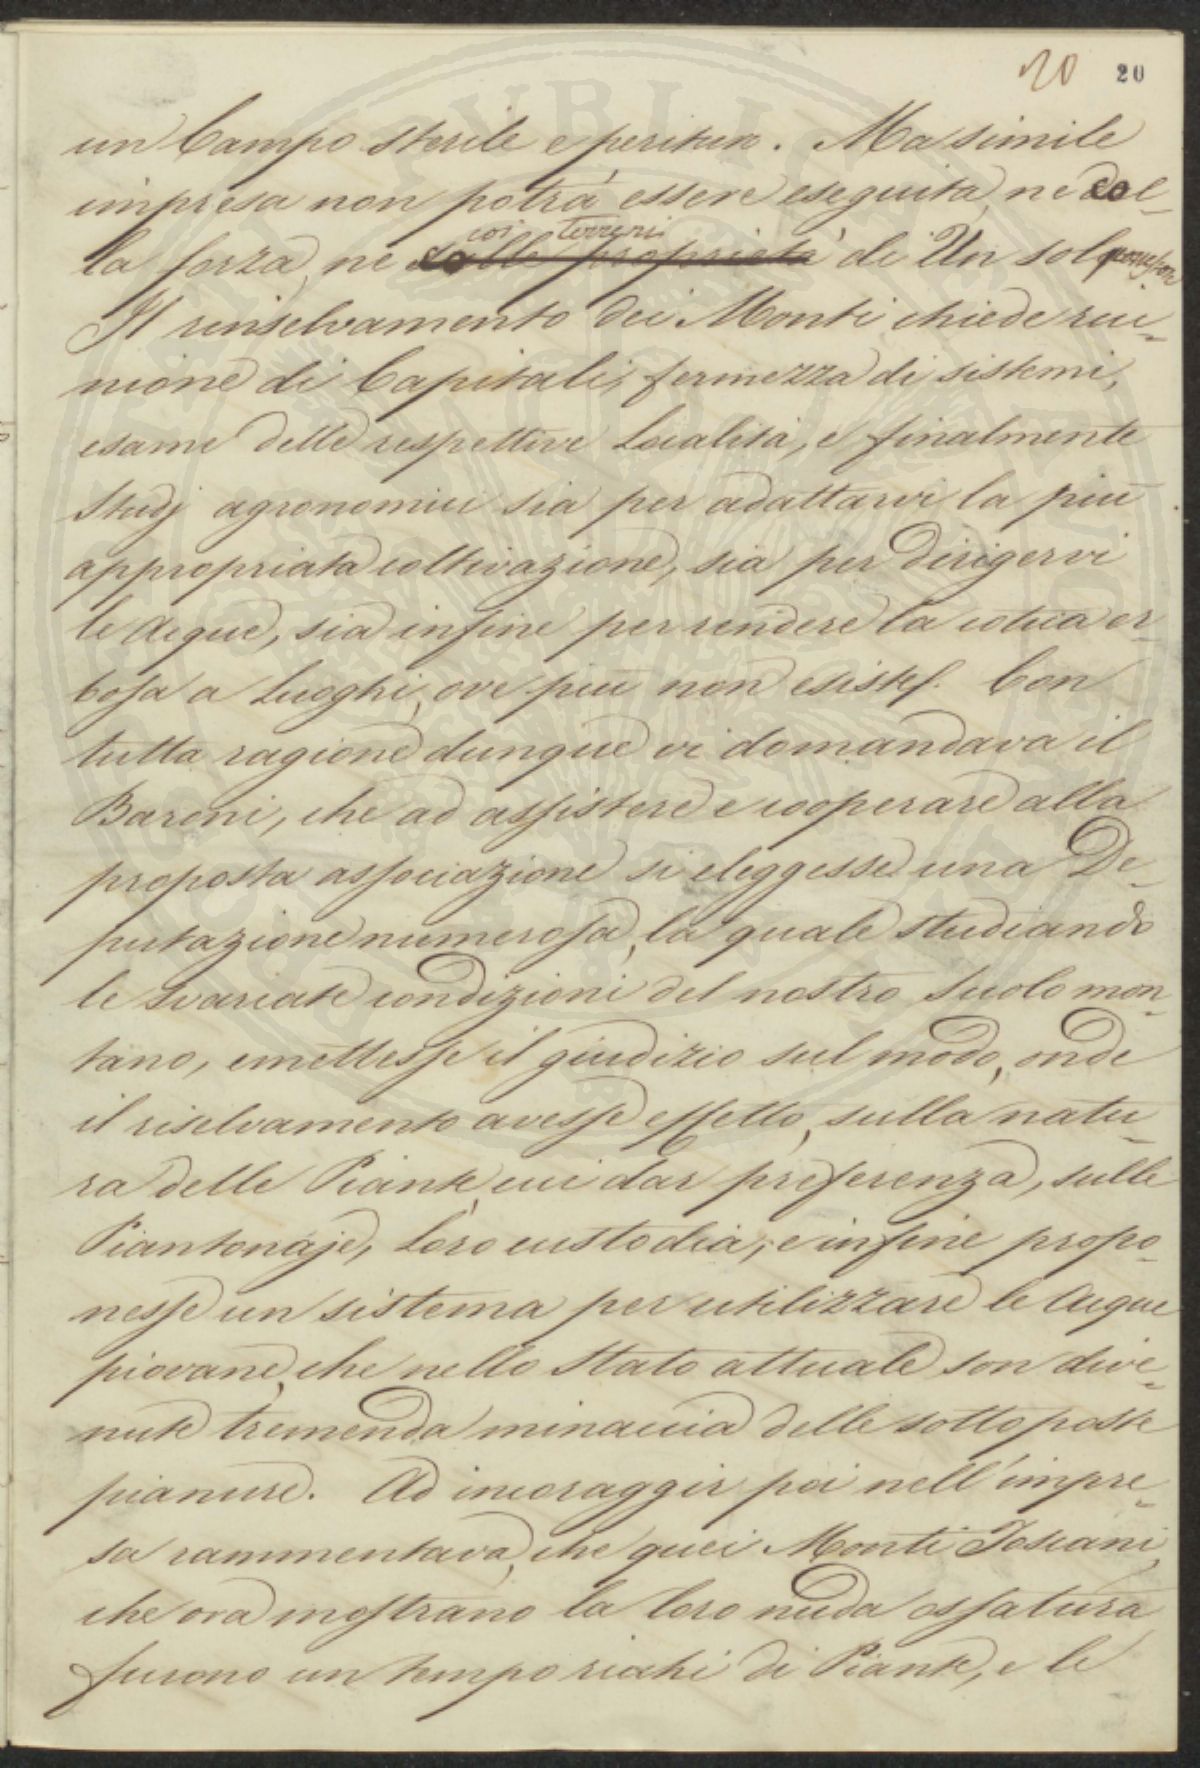 20 20
un Campo sterile e perituro. Ma simile
impresa non potrà essere eseguita, ne col-
coi terreni
la forza, ne colle proprietà di Un sol possessore
Il rinselvamento dei Monti chiede riu-
nione di Capitali, fermezza di sistemi,
esame delle respettive Località, e finalmente
Studj agronomici sia per adattarvi la più
appropriata coltivazione, sia per dirigervi
le Acque, sia infine per rendere la cotica er-
bosa a Luoghi, ove più non esiste. Con
tutta ragione dunque vi domandava il
Bareni, che ad assistere e cooperare alla
proposta associazione si eleggesse una De-
putazione numerosa, la quale studiando
le svariate condizioni del nostro Suolo mon-
tano, emettesse il giudizio sul modo, onde
il riselvamento avesse effetto, sulla natu-
ra delle Piante, cui dar preferenza, sulle
Piantonaje, Loro custodia, e infine propo-
nesse un sistema per utilizzare le Acque
piovane, che nello Stato attuale son dive-
nute tremenda minaccia delle sottoposte
pianure. Ad incoraggir poi nell'impre-
sa rammentava, che quei Monti Toscani,
che ora mostrano la loro nuda ossatura
furono un tempo ricchi di Piante, e le